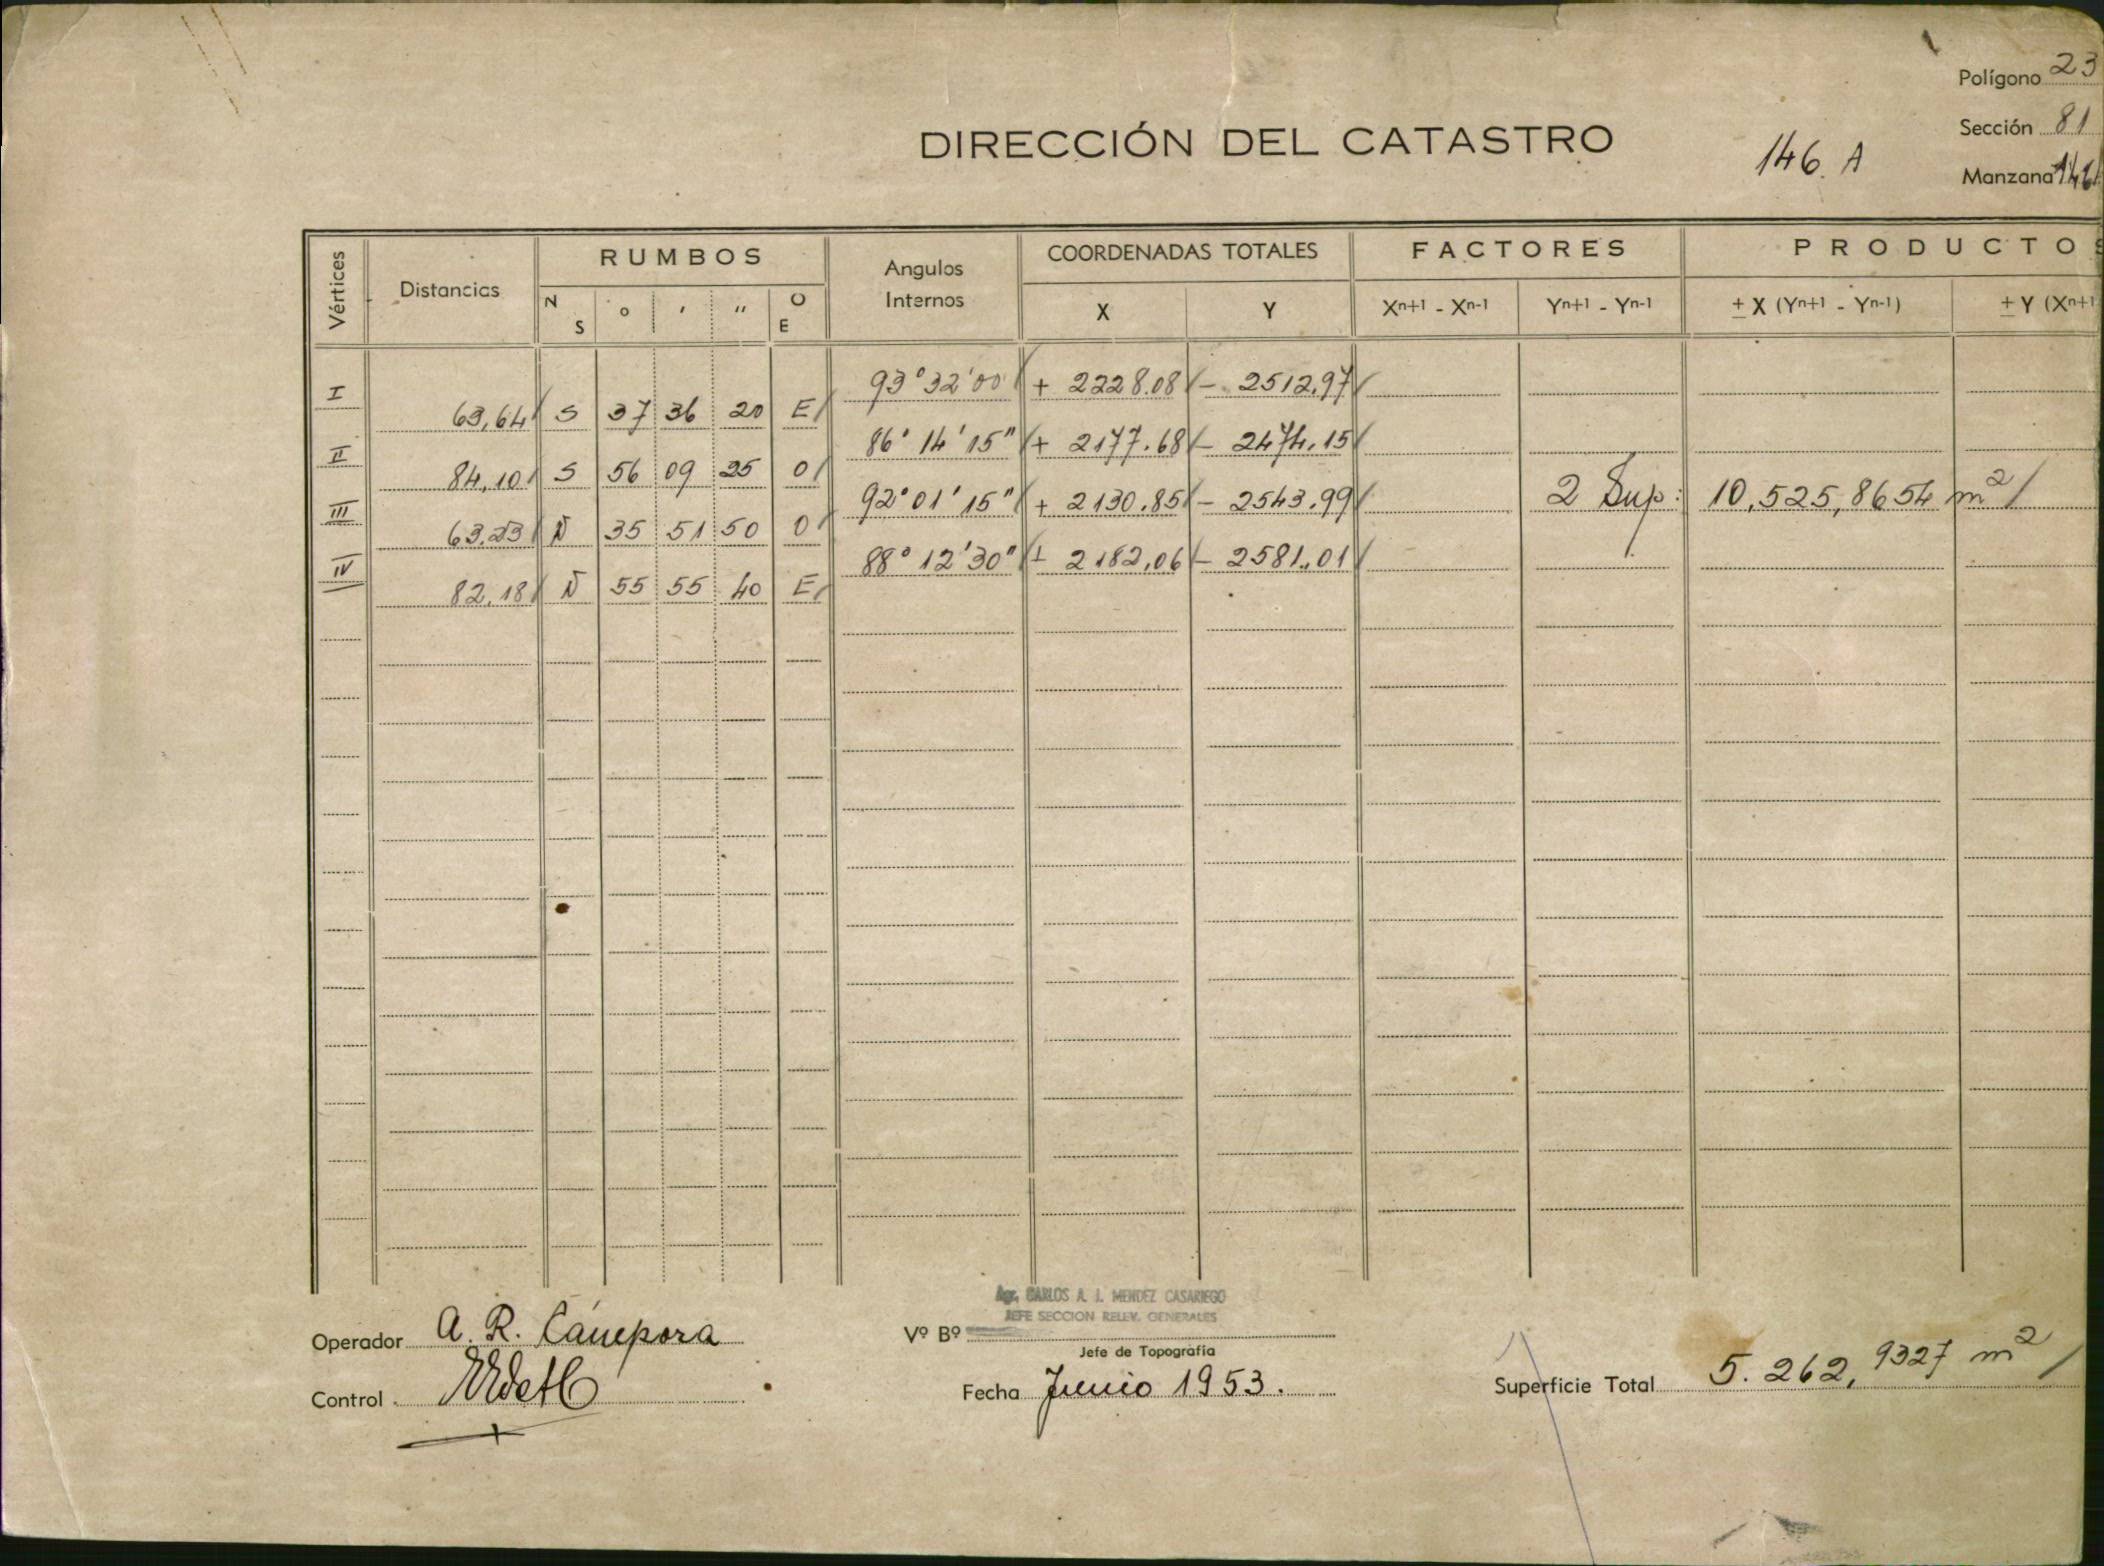 Polígono 23
DIRECCIÓN DEL CATASTRO
146. A
Sección 81
Manzana 146
Vértices
Distancias
RUMBOS
Angulos Internos
COORDENADAS TOTALES
FACTORES
PRODUCTOS
N S ° ' " O E
X Y
Xn+1 - Xn-1 Yn+1 - Yn-1
± X (Yn+1 - Yn-1) ± Y (Xn+1
I 93°32'00 + 2228.08 - 2512,97
63,64 S 37 36 20 E
II 86° 14' 15" + 2177.68 - 2474,15
84,10 S 56 09 25 O
III 92° 01' 15" + 2130.85 - 2543.99 2 Sup: 10.525,8654 m2
63.23 N 35 51 50 O
IV 88° 12' 30" + 2182,06 - 2581.01
82.18 N 55 55 40 E
Agr. CARLOS A. J. MENDEZ CASARIEGO
JEFE SECCION RELEV. GENERALES
Operador A. R. Cánepora
Vº Bº
Jefe de Topografía
Control
Fecha Junio 1953.
Superficie Total 5.262,9327 m2